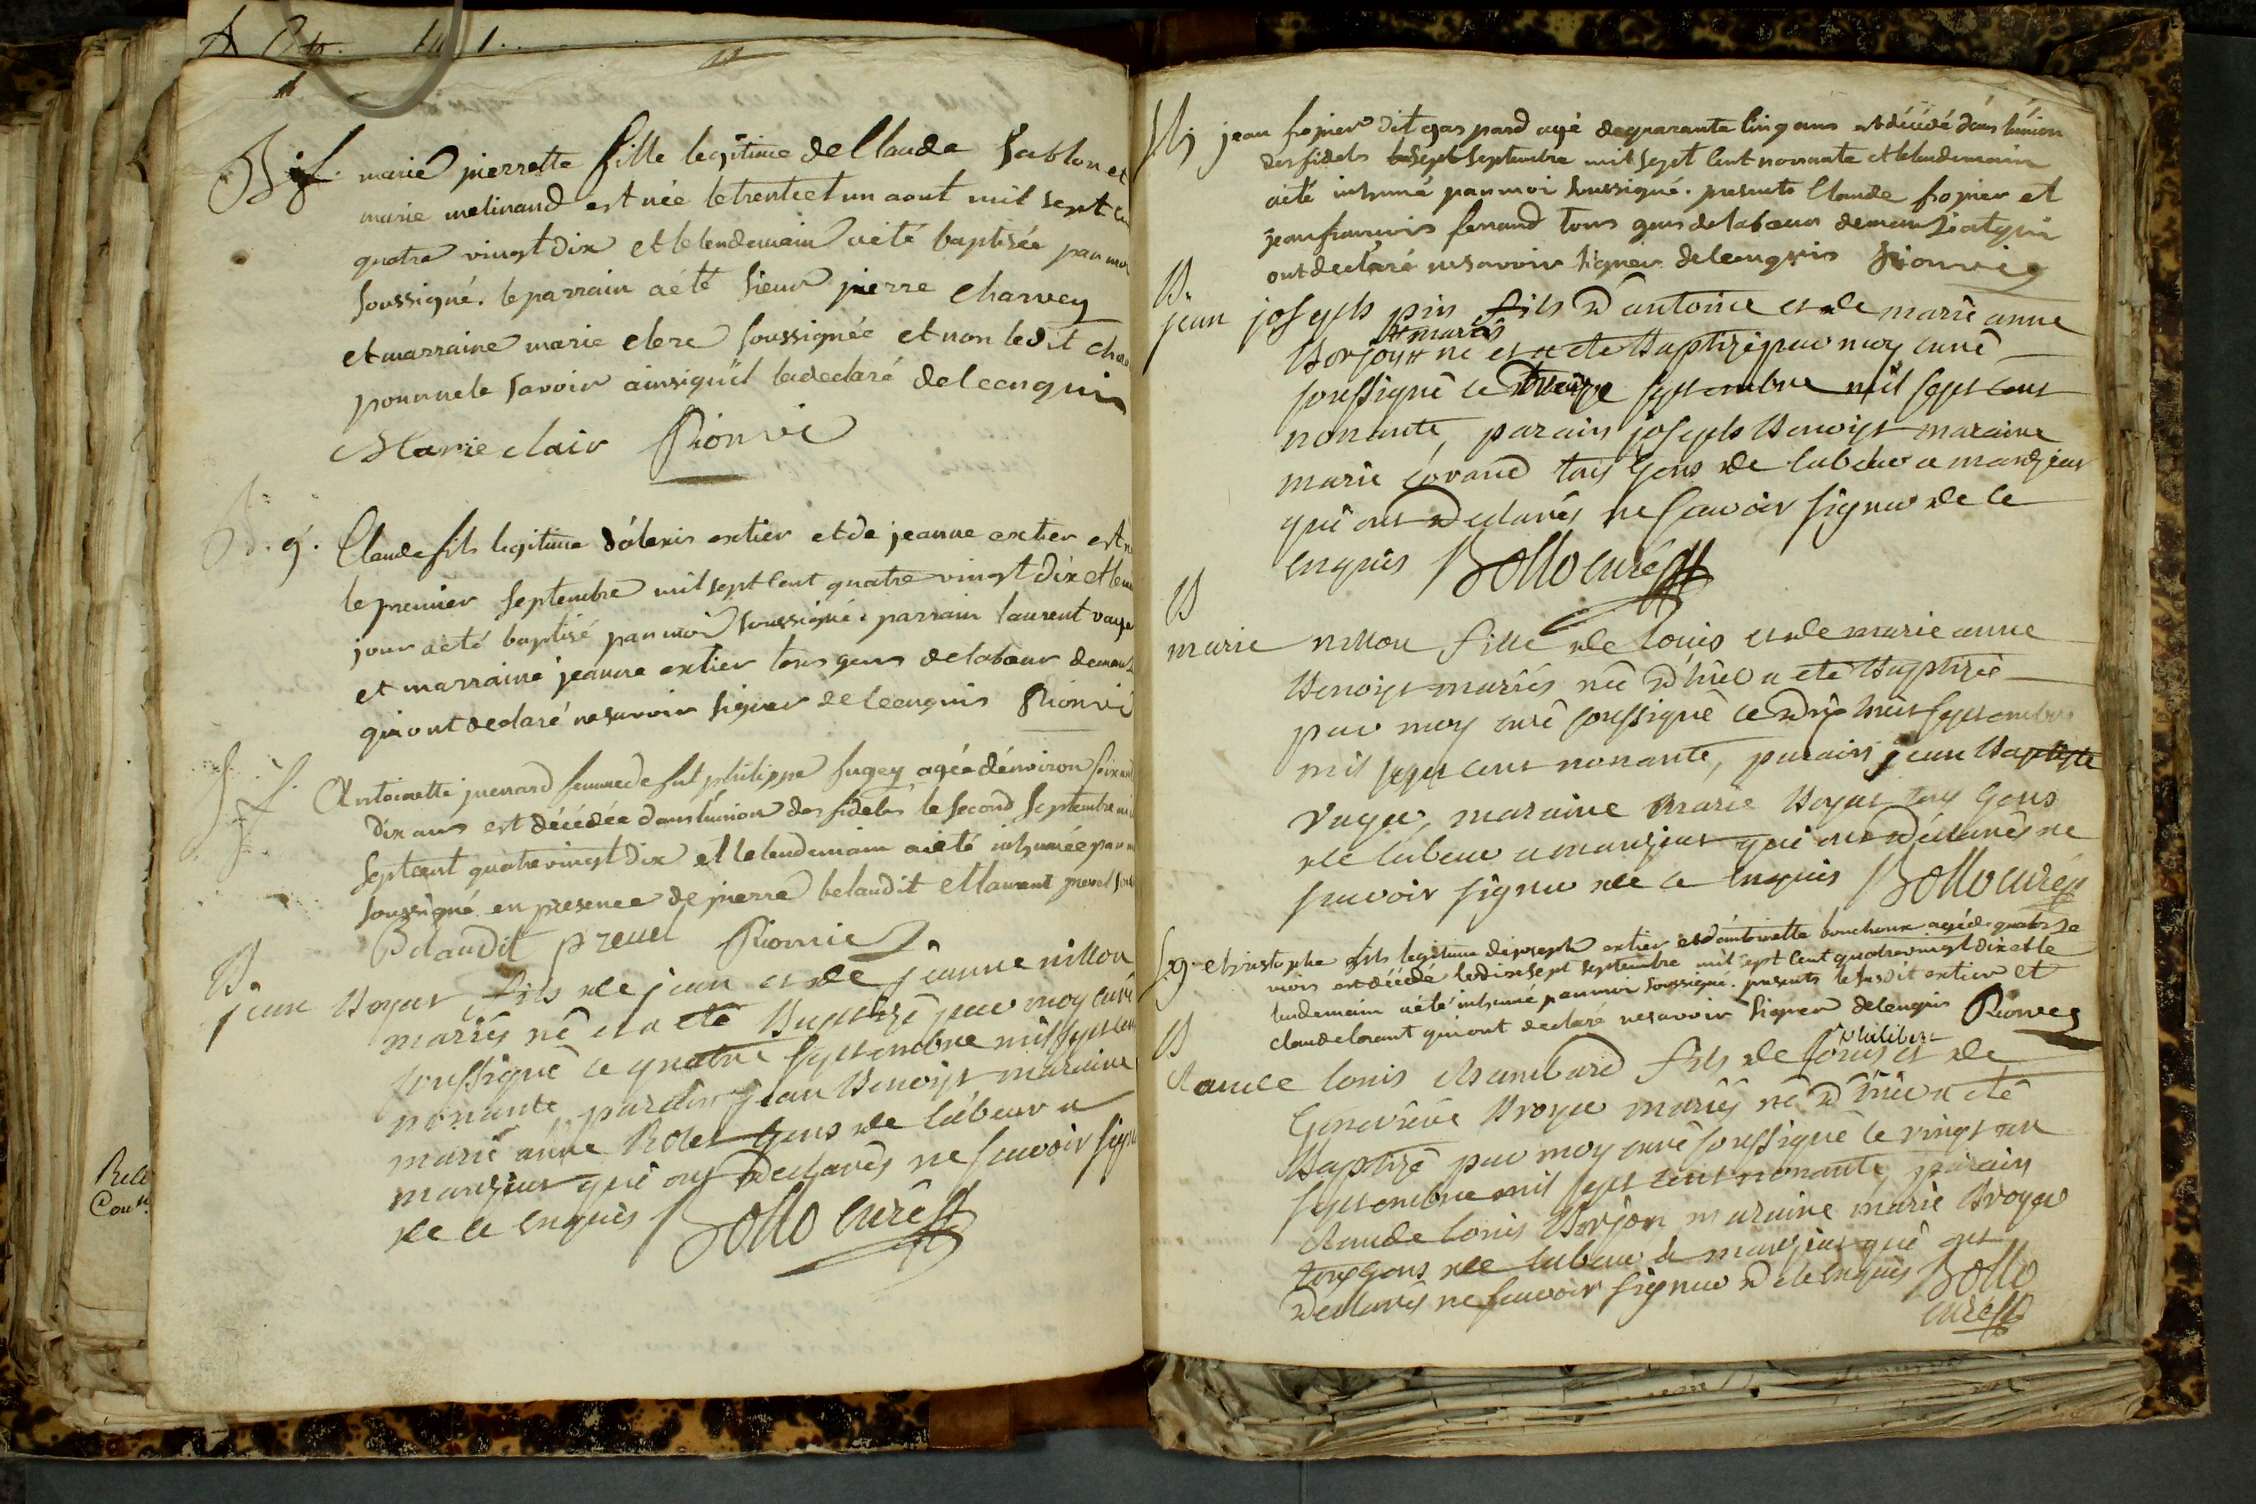 B. f. marie pierrette fille legitime de Claude Sablon et
marie melinand est née le trente et un aout mil sept cen
quatre vingt dix et le lendemain a été baptisée par moi
soussigné. le parrain a été sieur pierre Charvey
et marraine marie clere soussignée et non ledit char
pour ne le savoir ainsi qu'il la declaré de ce enquis
Marie clair Rionvé
B. g. Claude fils legitime d'alexis extier et de jeanne extier est
le premier septembre mil sept cent quatre vingt dix et le
jour a été baptisé par moi soussigné. parrain laurent
et marraine jeanne extier tous gens de labour de
qui ont declaré ne savoir signer de ce enquis Rionvé
S. f. Antoinette juenard femme de fut philippe fugey agée d'environ soixant
dix ans est décédée dans l'union des fideles le second septembre mil
sept cent quatre vingt dix et le lendemain a été inhumée par
soussigné en presence de pierre belaudit et laurent
Belaudit Rionvé
B.
jean Voyat fils de jean et de jeanne nillon
mariés né et a été Baptizé par moy curé
soussigné ce quatre septembre mil sept cent
nonante, parain jean Benoist maraine
marie anne Rolet gens de labeur a
marsziat qui ont declarés ne scavoir signe
de ce enquis Bollo curé
jean fropier dit gaspard agé de quarante cinq ans est décédé dans l'union
des fidels le sept septembre mil sept cent nonante et le lendemain
a été inhumé par moi soussigné. presents Claude fropier et
jean francois ferrand tous gens de labour de marsziat qui
ont declaré ne savoir signer de ce enquis Rionvé
B.
jean joseph pin fils d'antoine et de marie anne
mariés
Borjon né et a été Baptizé par moy curé
soussigné ce treize septembre mil sept cent
nonante, parain joseph Benoist maraine
marie tous gens de labeur a marsziat
qui ont declarés ne scavoir signer de ce
enquis Bollo curé
B
marie nillon fille de Louis et de marie anne
Benoist mariés née d'hier a été Baptizée
par moy curé soussigné ce dix huit septembre
mil sept cent nonante, parain jean Baptiste
Vuyer, maraine Marie Voyat tous gens
de labeur a marsziat qui ont déclarés ne
scavoir signer de ce enquis Bollo curé
S. g. christophe fils legitime de joseph extier et d'antoinette bouchoux agé de quatorze
mois est décédé le dixsept septembre mil sept cent quatre vingt dix et le
lendemain a été inhumé par moi soussigné. presents le susdit extier et
claude lorant qui ont declaré ne savoir signer de ce enquis Rionvé
B
philibert
claude louis chambard fils de Louis et de
Genevieve Broyer mariés né d'hier a été
Baptizé par moy curé soussigné ce vingt un
septembre mil sept cent nonante, parain
claude louis Borjon maraine marie Broyer
tous gens de labeur a marsziat qui ont
declarés ne scavoir signer de ce enquis Bollo
curé